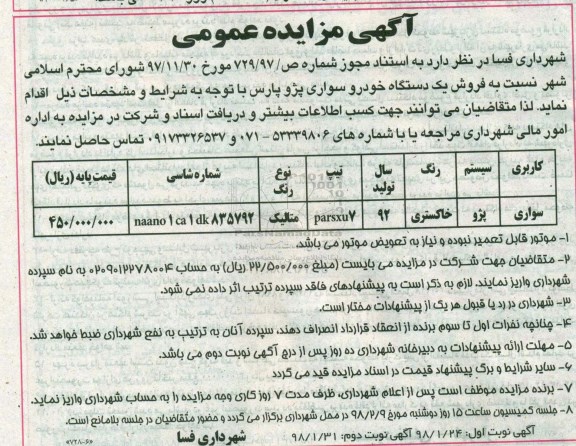 آگهی مزایده عمومی
شهرداری فسا در نظر دارد به استناد مجوز شماره ص/۷۲۹/۹۷ مورخ ۹۷/۱۱/۳۰ شورای محترم اسلامی
شهر نسبت به فروش یک دستگاه خودرو سواری پژو پارس با توجه به شرایط و مشخصات ذیل اقدام
نماید. لذا متقاضیان می توانند جهت کسب اطلاعات بیشتر و دریافت اسناد و شرکت در مزایده به اداره
امور مالی شهرداری مراجعه یا با شماره های ۵۳۳۳۹۸۰۶ - ۰۷۱ و ۰۹۱۷۳۳۲۶۵۳۷ تماس حاصل نمایند.
کاربری سیستم رنگ سال تولید تیپ نوع رنگ شماره شاسی قیمت پایه (ریال)
سواری پژو خاکستری ۹۲ parsxu۷ متالیک naano۱ca۱dk۸۳۵۷۹۲ ۴۵۰/۰۰۰/۰۰۰
۱- موتور قابل تعمیر نبوده و نیاز به تعویض موتور می باشد.
۲- متقاضیان جهت شرکت در مزایده می بایست (مبلغ ۲۲/۵۰۰/۰۰۰ ریال) به حساب ۰۲۰۹۰۱۲۲۷۸۰۰۴ به نام سپرده
شهرداری واریز نمایند. لازم به ذکر است به پیشنهادهای فاقد سپرده ترتیب اثر داده نمی شود.
۳- شهرداری در رد یا قبول هر یک از پیشنهادات مختار است.
۴- چنانچه نفرات اول تا سوم برنده از انعقاد قرارداد انصراف دهند، سپرده آنان به ترتیب به نفع شهرداری ضبط خواهد شد.
۵- مهلت ارائه پیشنهادات به دبیرخانه شهرداری ده روز پس از درج آگهی نوبت دوم می باشد.
۶- سایر شرایط و برگ پیشنهاد قیمت در اسناد مزایده قید می گردد
۷- برنده مزایده موظف است پس از اعلام شهرداری، ظرف مدت ۷ روز کاری وجه مزایده را به حساب شهرداری واریز نماید.
۸- جلسه کمیسیون ساعت ۱۵ روز دوشنبه مورخ ۹۸/۲/۹ در محل شهرداری برگزار می گردد و حضور متقاضیان در جلسه بلامانع است.
آگهی نوبت اول: ۹۸/۱/۲۴ آگهی نوبت دوم: ۹۸/۱/۳۱
شهرداری فسا